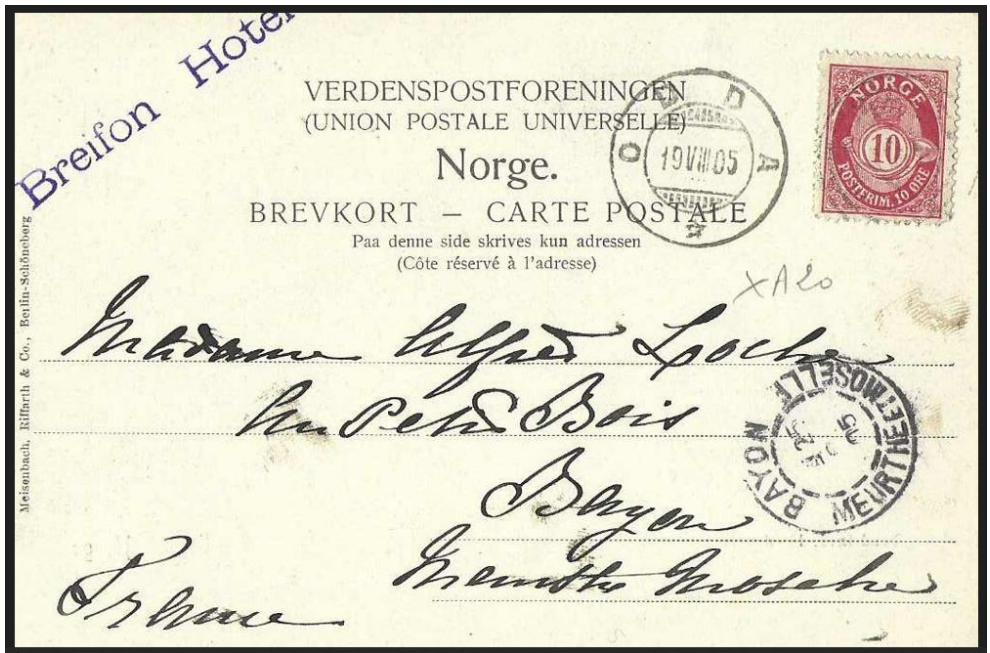 Breifon Hotel
VERDENSPOSTFORENINGEN
(UNION POSTALE UNIVERSELLE)
Norge.
BREVKORT – CARTE POSTALE
Paa denne side skrives kun adressen
(Côte réservé à l'adresse)
ODDA
19 VIII 05
NORGE
10
POSTFRIM. 10 ØRE
XA20
Madame Alfred
Au Petit Bois
Bayon
Meurthe Moselle
France
BAYON
MEURTHE ET MOSELLE
Meisenbach, Riffarth & Co., Berlin-Schöneberg